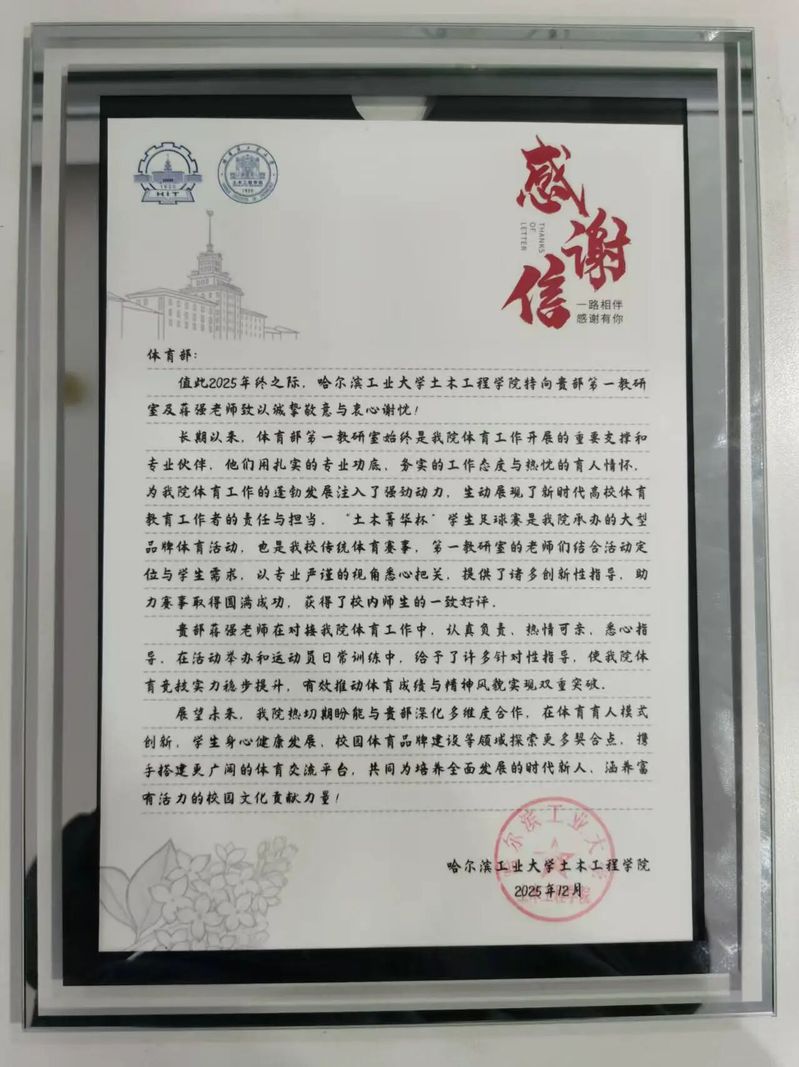 感谢信
THANKS
OF
LETTER
一路相伴
感谢有你
1920
HIT
土木工程学院
1920
体育部：
值此2025年终之际，哈尔滨工业大学土木工程学院特向贵部第一教研
室及薛强老师致以诚挚敬意与衷心谢忱！
长期以来，体育部第一教研室始终是我院体育工作开展的重要支撑和
专业伙伴，他们用扎实的专业功底、务实的工作态度与热忱的育人情怀，
为我院体育工作的蓬勃发展注入了强劲动力，生动展现了新时代高校体育
教育工作者的责任与担当。“土木菁华杯”学生足球赛是我院承办的大型
品牌体育活动，也是我校传统体育赛事，第一教研室的老师们结合活动定
位与学生需求，以专业严谨的视角悉心把关，提供了诸多创新性指导，助
力赛事取得圆满成功，获得了校内师生的一致好评。
贵部薛强老师在对接我院体育工作中，认真负责、热情可亲，悉心指
导，在活动举办和运动员日常训练中，给予了许多针对性指导，使我院体
育竞技实力稳步提升，有效推动体育成绩与精神风貌实现双重突破。
展望未来，我院热切期盼能与贵部深化多维度合作，在体育育人模式
创新、学生身心健康发展、校园体育品牌建设等领域探索更多契合点，携
手搭建更广阔的体育交流平台，共同为培养全面发展的时代新人、涵养富
有活力的校园文化贡献力量！
哈尔滨工业大学土木工程学院
2025年12月
哈尔滨工业大学
土木工程学院